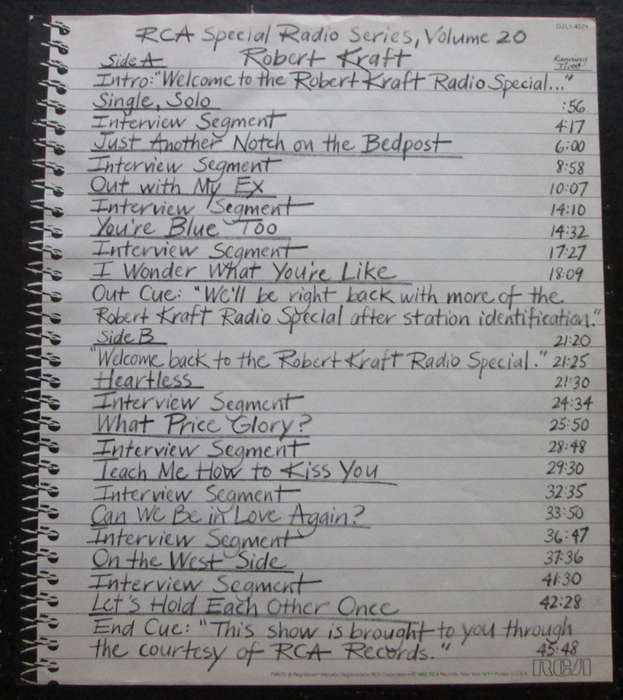 DJL1-4524
RCA Special Radio Series, Volume 20
Robert Kraft
Side A Running Time:
Intro: "Welcome to the Robert Kraft Radio Special..."
Single, Solo :56
Interview Segment 4:17
Just Another Notch on the Bedpost 6:00
Interview Segment 8:58
Out with My Ex 10:07
Interview Segment 14:10
You're Blue Too 14:32
Interview Segment 17:27
I Wonder What You're Like 18:09
Out Cue: "We'll be right back with more of the
Robert Kraft Radio Special after station identification."
Side B 21:20
"Welcome back to the Robert Kraft Radio Special." 21:25
Heartless 21:30
Interview Segment 24:34
What Price Glory? 25:50
Interview Segment 28:48
Teach Me How to Kiss You 29:30
Interview Segment 32:35
Can We Be in Love Again? 33:50
Interview Segment 36:47
On the West Side 37:36
Interview Segment 41:30
Let's Hold Each Other Once 42:28
End Cue: "This show is brought to you through
the courtesy of RCA Records." 45:48
RCA